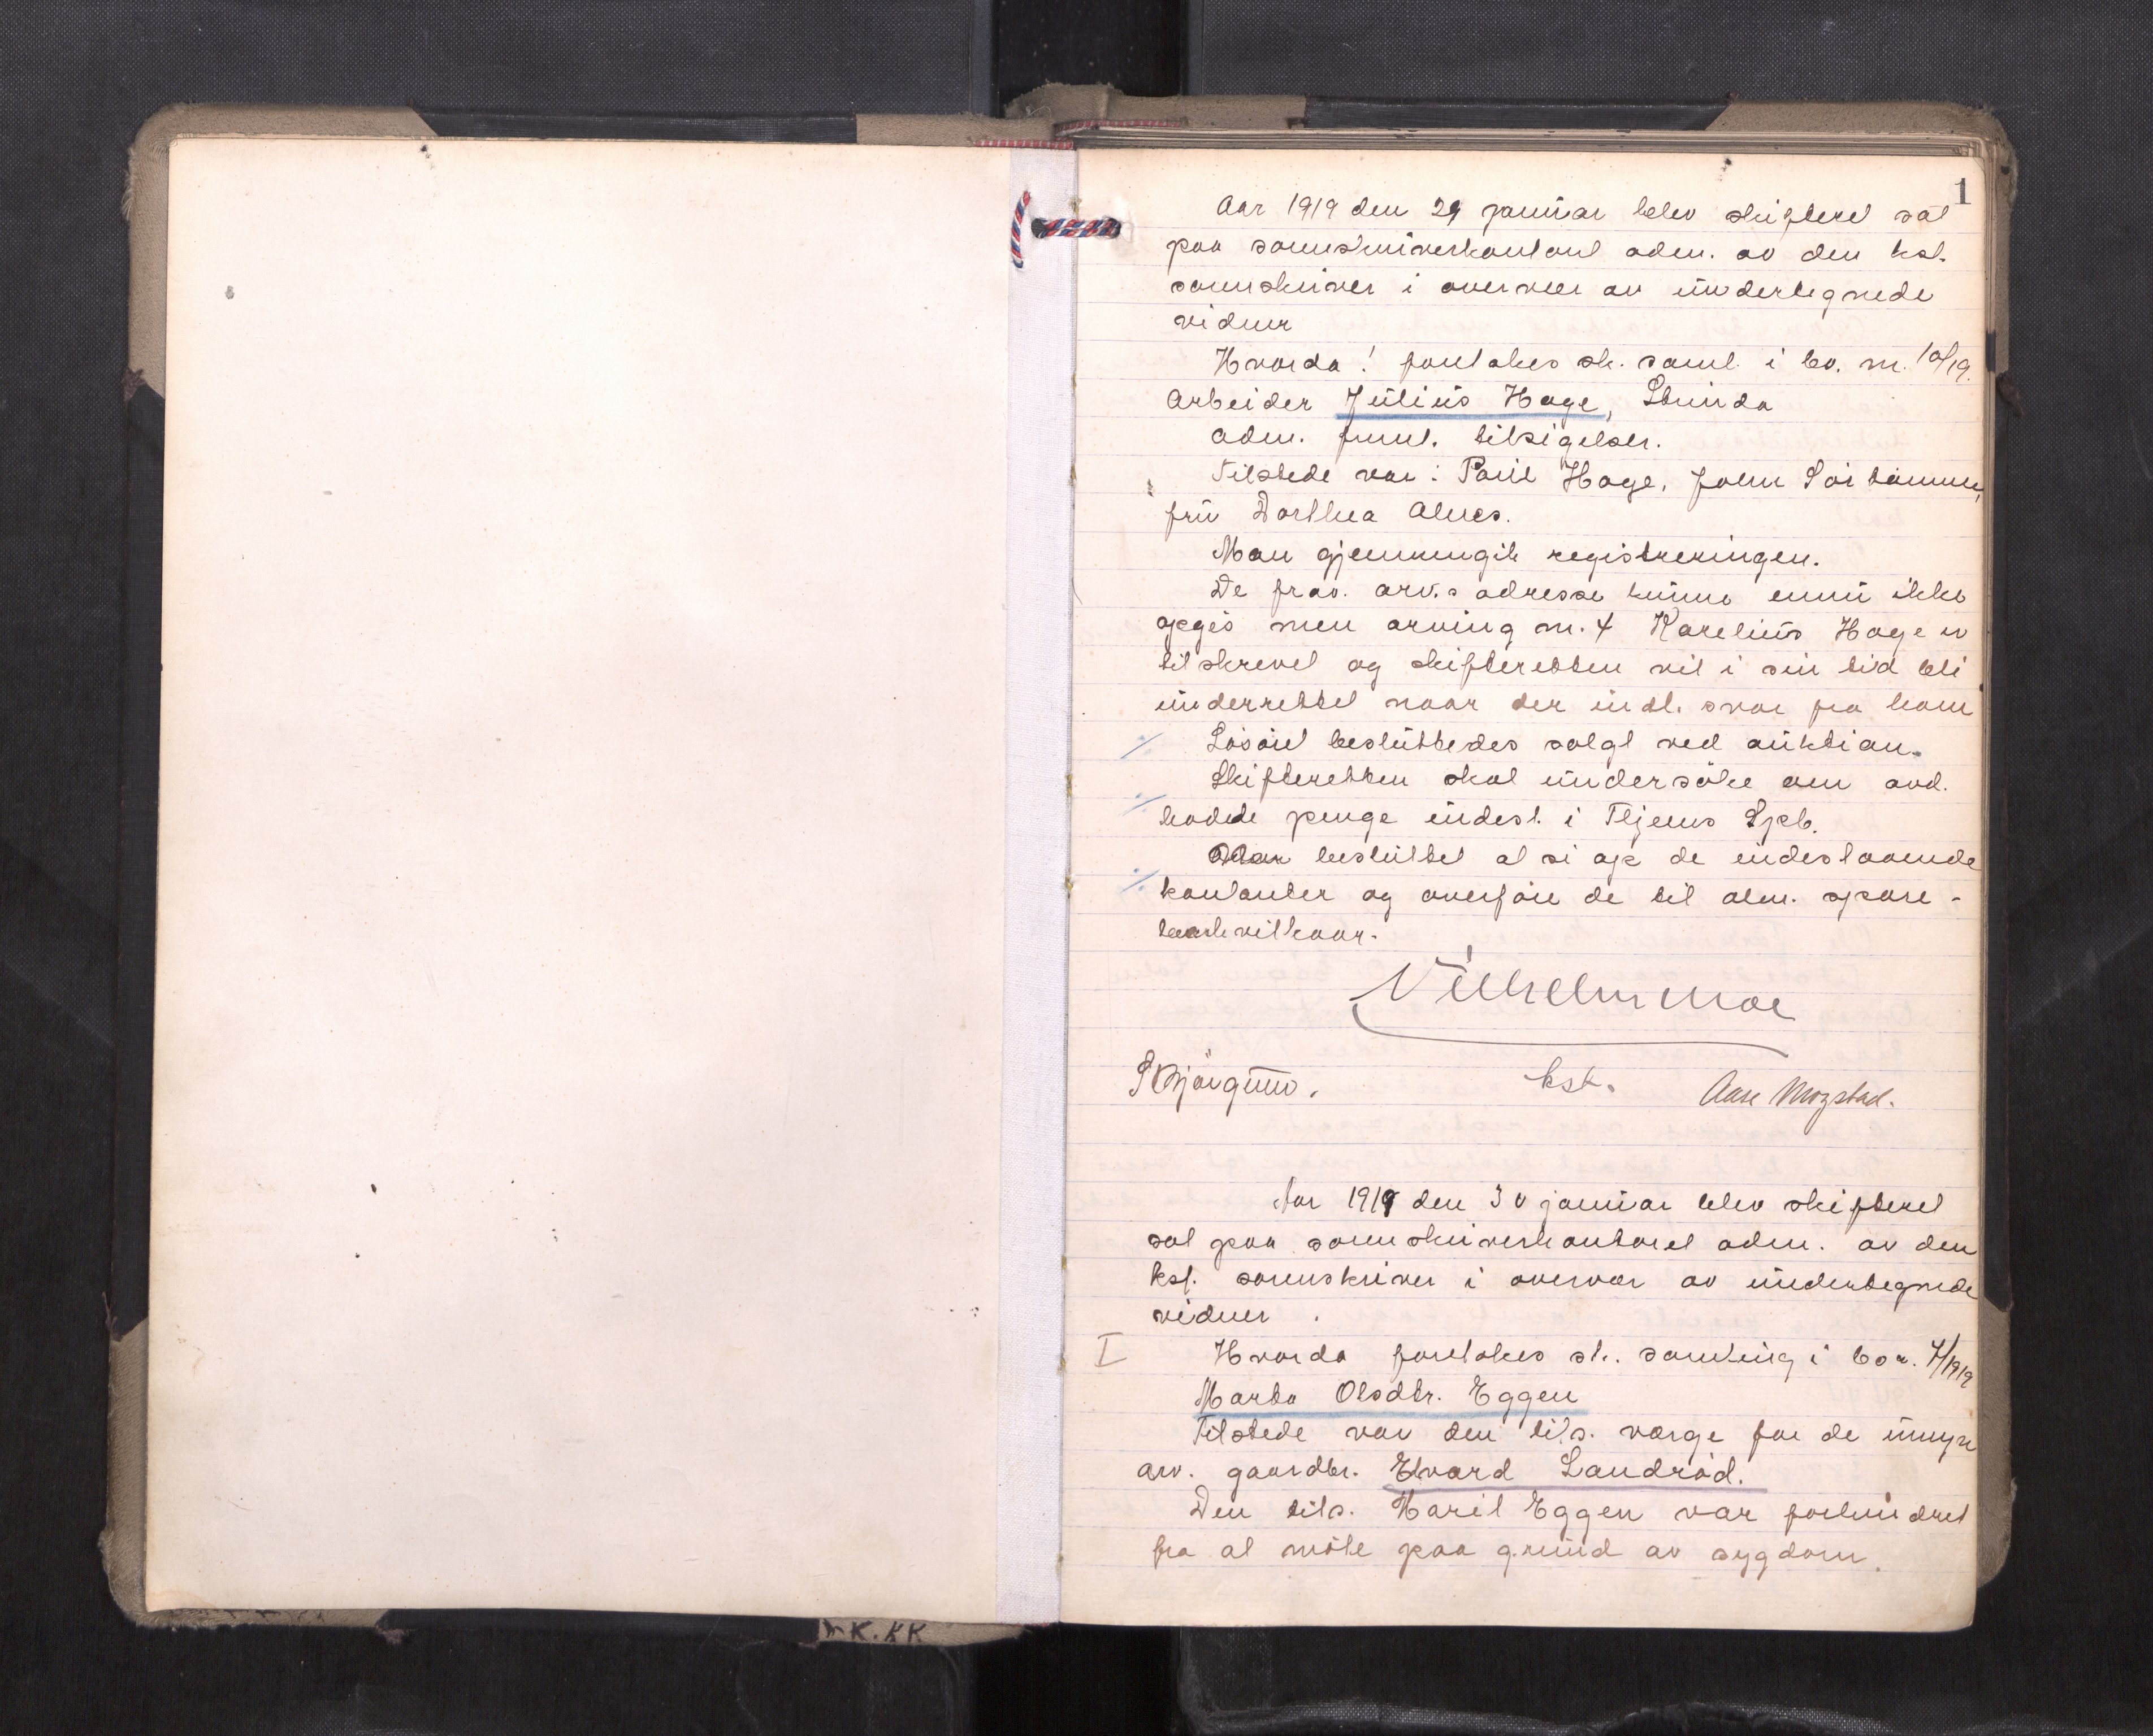 1
Aar 1919 den 29 januar blev skifteret sat
paa sorenskriverkontoret adm. av den kst.
sorenskriver i overvær av undertegnede
vidner
Hvorda! foretokes sk. saml. i bo. nr. 10/19.
Arbeider Julius Hage, Strinda
adm. frml. tilsigelser.
Tilstede var: Paul Hage, John
fru Dorthea Alnes.
Man gjennemgik registreringen.
De frav. arv.s adresse kunne ennu ikke
opgis men arving nr. 4 Karelius Hage er
tilskrevet og skifteretten vil i sin tid bli
underrettet naar der indl. svar fra ham
Løsøret besluttedes solgt ved auktion.
Skifteretten skal undersøke om avd.
hadde penge indest. i Thjems Spb.
Man besluttet at si op de indestaaende
kontanter og overføre de til alm. spare-
bankvilkaar.
Vilhelm Moe
kst.
Aase Mogstad.
Aar 1919 den 30 januar blev skifteret
sat paa sorenskriverkontoret adm. av den
kst. sorenskriver i overvær av undertegnede
vidner.
I Hvorda foretokes sk. samling i bo nr. 4/1919
Marta Olsdtr. Eggen
Tilstede var den tils. værge for de umyn
arv. gaardbr. Edvard Landrød.
Den tils. Karil Eggen var forhindret
fra at møte paa grund av sygdom.
K.KK